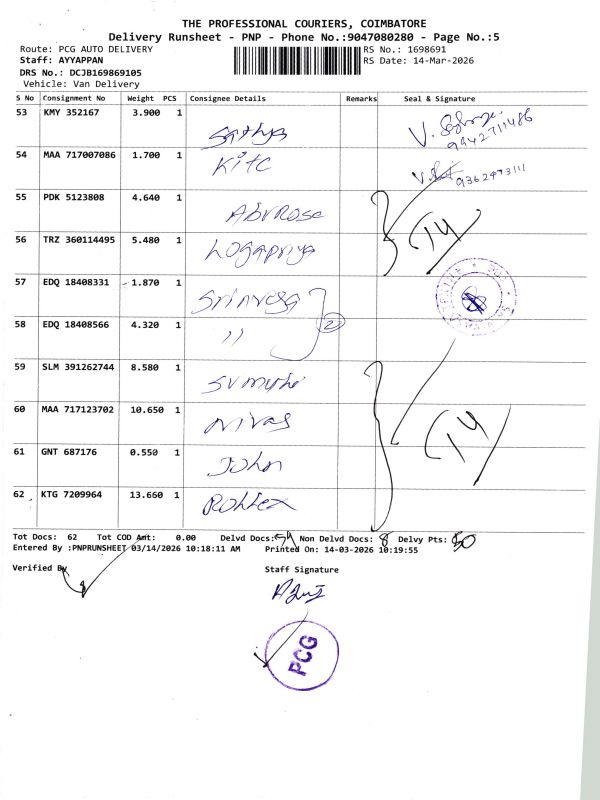 THE PROFESSIONAL COURIERS, COIMBATORE
Delivery Runsheet - PNP - Phone No.:9047080280 - Page No.:5
Route: PCG AUTO DELIVERY RS No.: 1698691
Staff: AYYAPPAN RS Date: 14-Mar-2026
DRS No.: DCJB169869105
Vehicle: Van Delivery
S No Consignment No Weight PCS Consignee Details Remarks Seal & Signature
53 KMY 352167 3.900 1 Sathya 9942711486
54 MAA 717007086 1.700 1 Kitc 9362473111
55 PDK 5123808 4.640 1
56 TRZ 360114495 5.480 1 Logapriya
57 EDQ 18408331 1.870 1
58 EDQ 18408566 4.320 1 〃 2
59 SLM 391262744 8.580 1
60 MAA 717123702 10.650 1 Nivas
61 GNT 687176 0.550 1 John
62 KTG 7209964 13.660 1
Tot Docs: 62 Tot COD Amt: 0.00 Delvd Docs: 54 Non Delvd Docs: 8 Delvy Pts: 50
Entered By :PNPRUNSHEET 03/14/2026 10:18:11 AM Printed On: 14-03-2026 10:19:55
Verified By Staff Signature
PCG